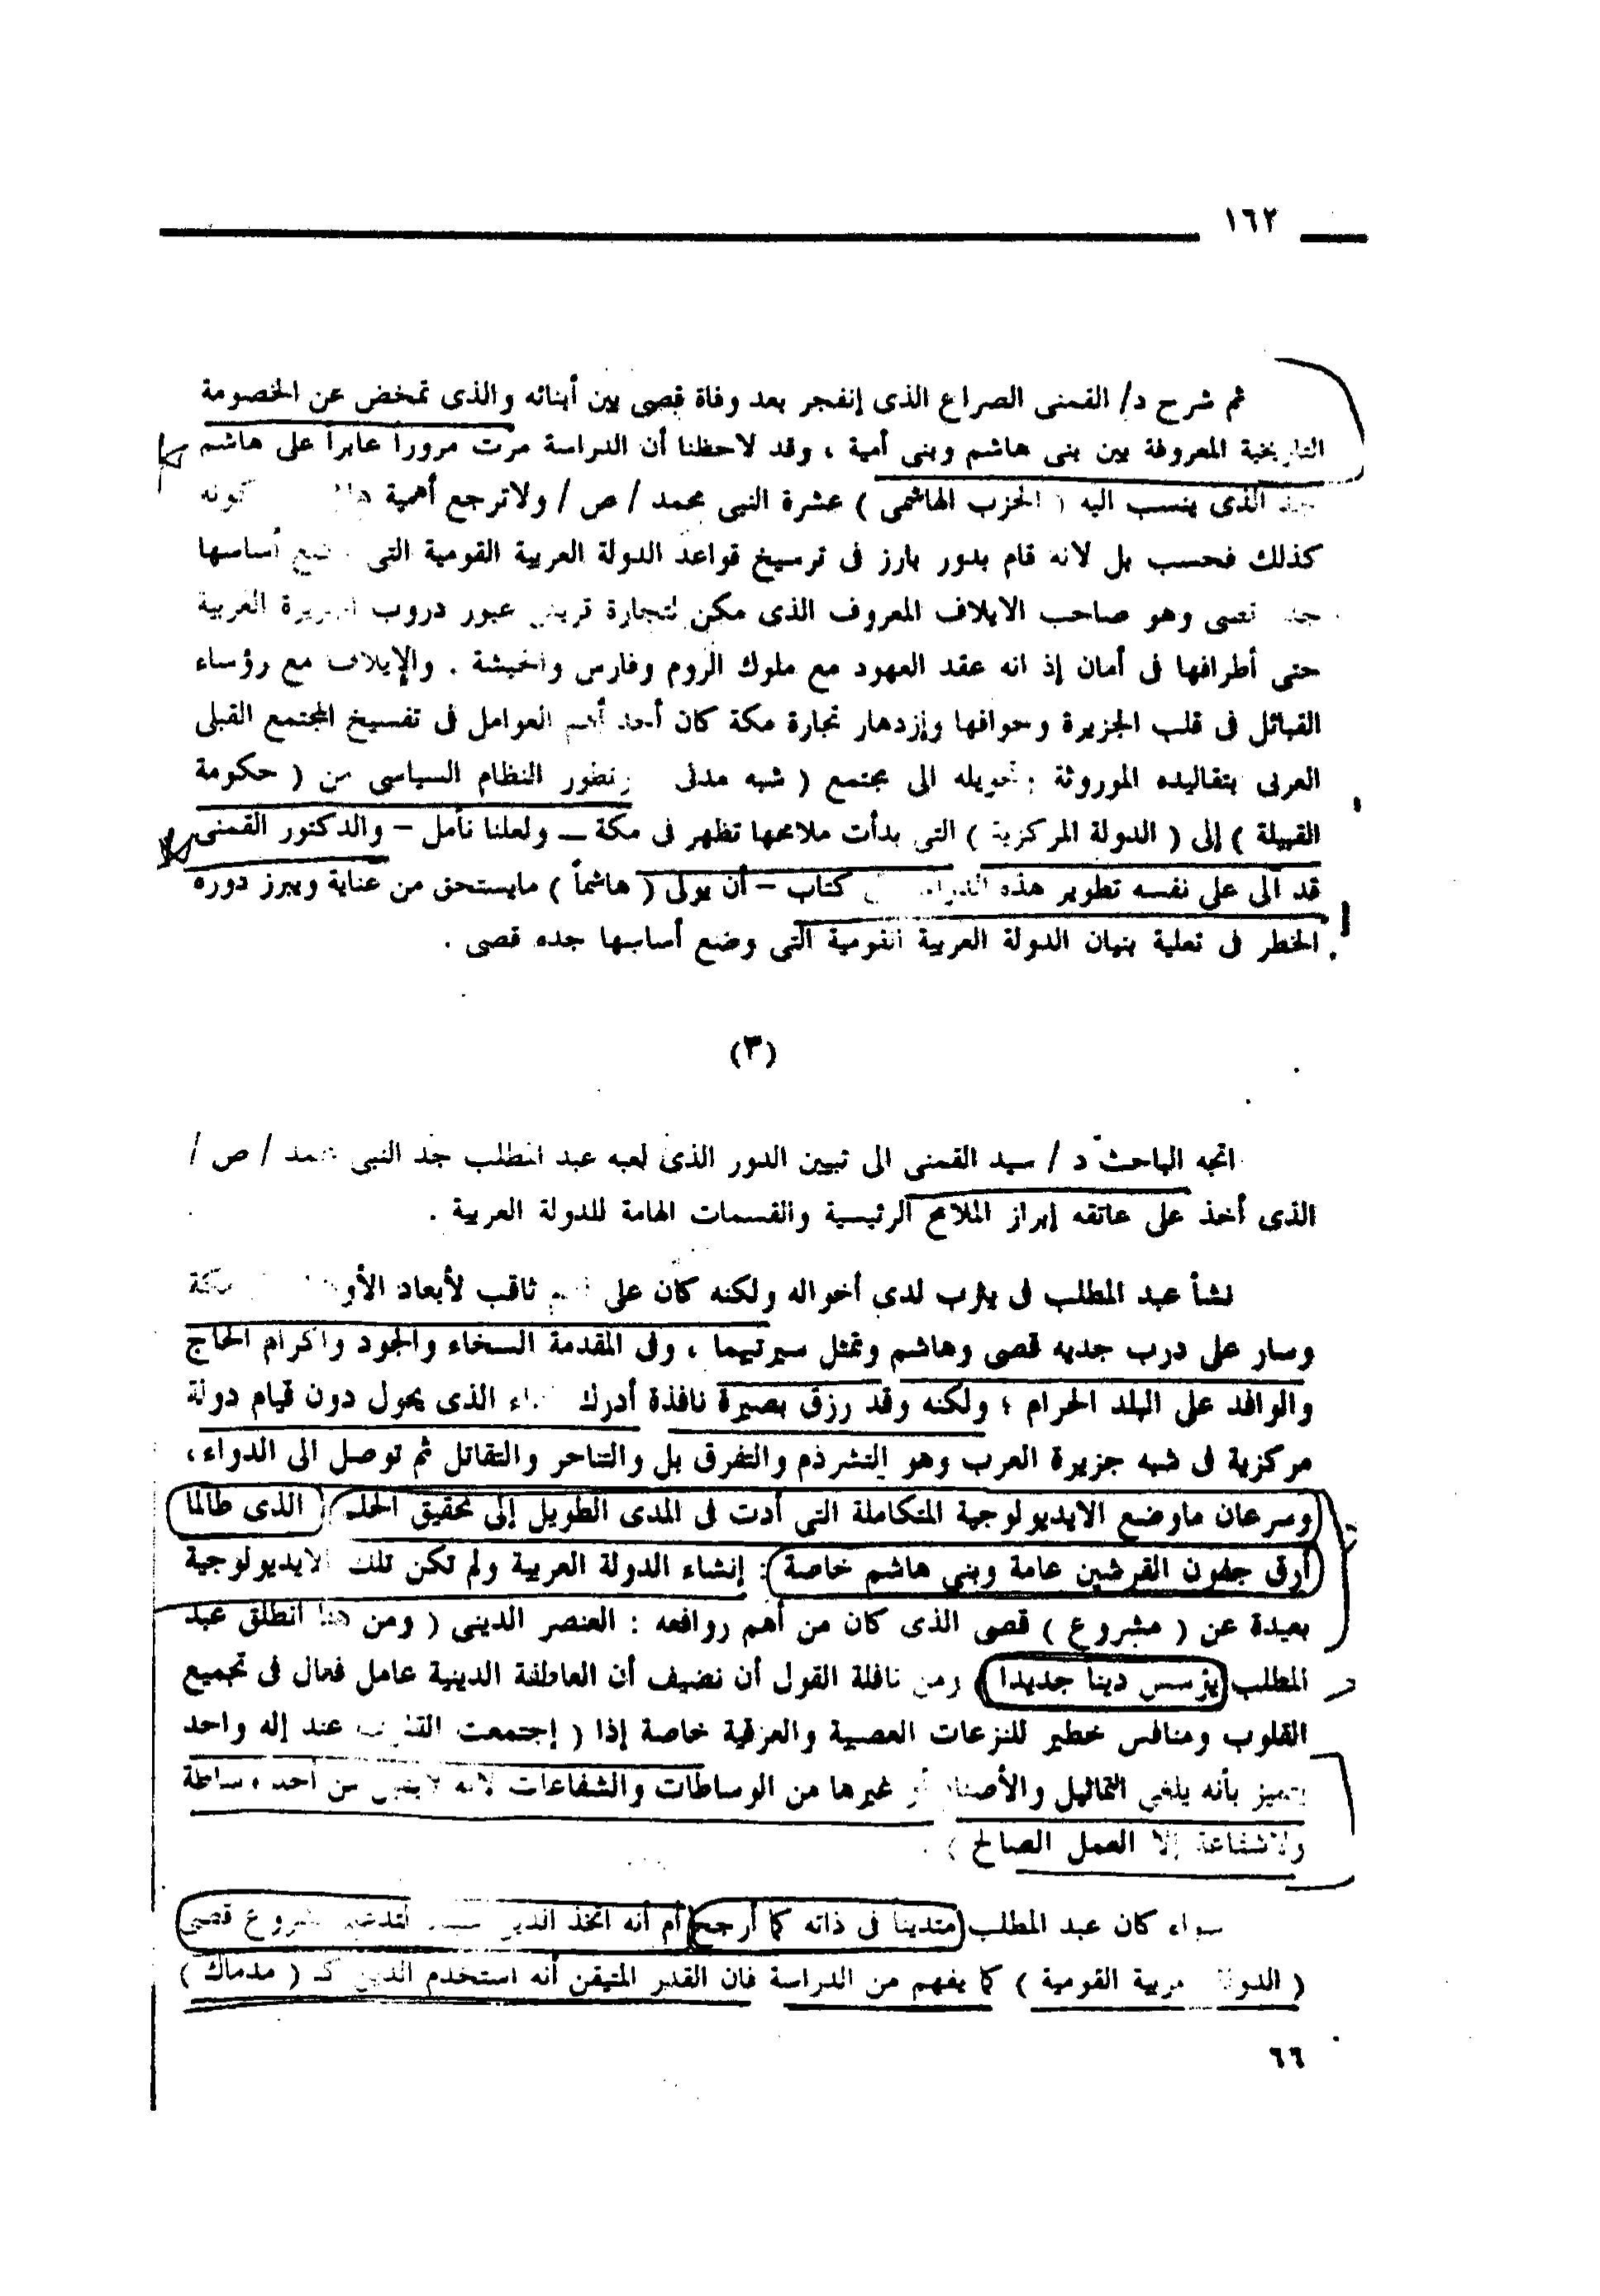 ١٦٢
ثم شرح د/ القمنى الصراع الذى إنفجر بعد وفاة قصى بين أبنائه والذى تمخض عن الخصومة
التاريخية المعروفة بين بنى هاشم وبنى أمية ، وقد لاحظنا أن الدراسة مرت مروراً عابراً على هاشم
الذى ينسب اليه ( الحزب الهاشمى ) عشرة النبى محمد /ص/ ولاترجع أهمية كونه
كذلك فحسب بل لانه قام بدور بارز فى ترسيخ قواعد الدولة العربية القومية التى أساسها
قصى وهو صاحب الايلاف المعروف الذى مكن لتجارة قريش عبور دروب الجزيرة العربية
حتى أطرافها فى أمان إذ انه عقد العهود مع ملوك الروم وفارس والحبشة . والإيلاف مع رؤساء
القبائل فى قلب الجزيرة وحوافها وإزدهار تجارة مكة كان أحد أهم العوامل فى تفسيخ المجتمع القبلى
العربى بتقاليده الموروثة وتحويله الى مجتمع ( شبه مدنى وتطور النظام السياسى من ( حكومة
القبيلة ) إلى ( الدولة المركزية ) التى بدأت ملامحها تظهر فى مكة ــ ولعلنا نأمل – والدكتور القمنى
قد آلى على نفسه تطوير هذه كتاب – أن يولى ( هاشماً ) مايستحق من عناية ويبرز دوره
الخطر فى تعلية بنيان الدولة العربية القومية التى وضع أساسها جده قصى .
(٣)
اتجه الباحث د / سيد القمنى الى تبيين الدور الذى لعبه عبد المطلب جد النبى محمد /ص/
الذى أخذ على عاتقه إبراز الملامح الرئيسية والقسمات الهامة للدولة العربية .
نشأ عبد المطلب فى يثرب لدى أخواله ولكنه كان على ثاقب لأبعاد مكة
وسار على درب جديه قصى وهاشم وتمثل سيرتيهما ، وفى المقدمة السخاء والجود واكرام الحاج
والوافد على البلد الحرام ؛ ولكنه وقد رزق بصيرة نافذة أدرك الذى يحول دون قيام دولة
مركزية فى شبه جزيرة العرب وهو التشرذم والتفرق بل والتناحر والتقاتل ثم توصل الى الدواء ،
وسرعان ماوضع الايديولوجية المتكاملة التى أدت فى المدى الطويل إلى تحقيق الحلم الذى طالما
أرق جفون القرشين عامة وبنى هاشم خاصة : إنشاء الدولة العربية ولم تكن تلك الايديولوجية
بعيدة عن ( مشروع ) قصى الذى كان من أهم روافعه : العنصر الدينى ( ومن هنا انطلق عبد
المطلب يؤسس دينا جديدا ) ومن نافلة القول أن نضيف أن العاطفة الدينية عامل فعال فى تجميع
القلوب ومنافس خطير للنزعات العصبية والعرقية خاصة إذا ( إجتمعت القلوب عند إله واحد
يتميز بأنه يلغى التماثيل والأصنام أو غيرها من الوساطات والشفاعات لانه لايقبل من أحد وساطة
ولاشفاعة إلا العمل الصالح ) .
سواء كان عبد المطلب متديناً فى ذاته كما أرجح أم أنه اتخذ الدين لتدعيم مشروع قصى
( الدولة العربية القومية ) كما يفهم من الدراسة فان القدر المتيقن أنه استخدم الدين كـ ( مدماك )
٦٦